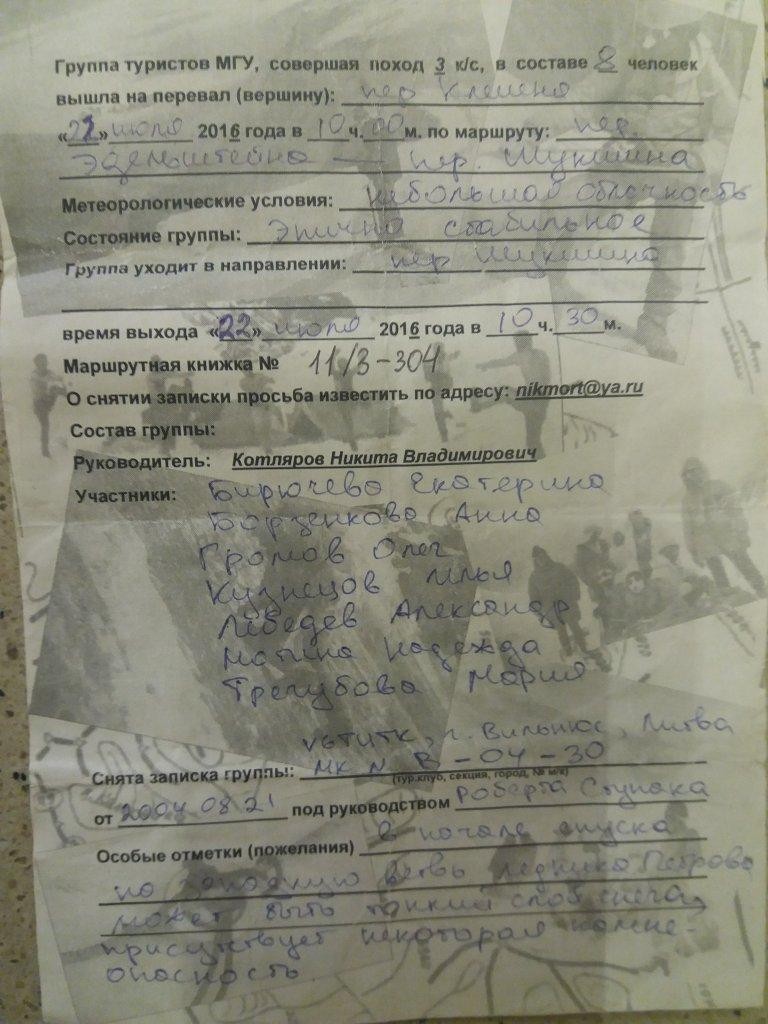 Группа туристов МГУ, совершая поход 3 к/с, в составе 8 человек
вышла на перевал (вершину): пер Клешня
«22» июля 2016 года в 10 ч. 00 м. по маршруту: пер.
Эдельштейна — пер. Шукшина
Метеорологические условия: небольшая облачность
Состояние группы: Эпично стабильное
Группа уходит в направлении: пер Шукшина
время выхода «22» июля 2016 года в 10 ч. 30 м.
Маршрутная книжка № 11/3-304
О снятии записки просьба известить по адресу: nikmort@ya.ru
Состав группы:
Руководитель: Котляров Никита Владимирович
Участники: Бирючева Екатерина
Борзенкова Анна
Громов Олег
Кузнецов Илья
Лебедев Александр
Надежда
Трегубова Мария
г. Вильнюс, Литва
Снята записка группы: МК № В-04-30
(тур.клуб, секция, город, № м/к)
от 2004 08 21 под руководством Роберта Ступака
Особые отметки (пожелания) в начале спуска
на западную ветвь ледника Петрова
может быть тонкий слой снега,
присутствует некоторая камне-
опасность.